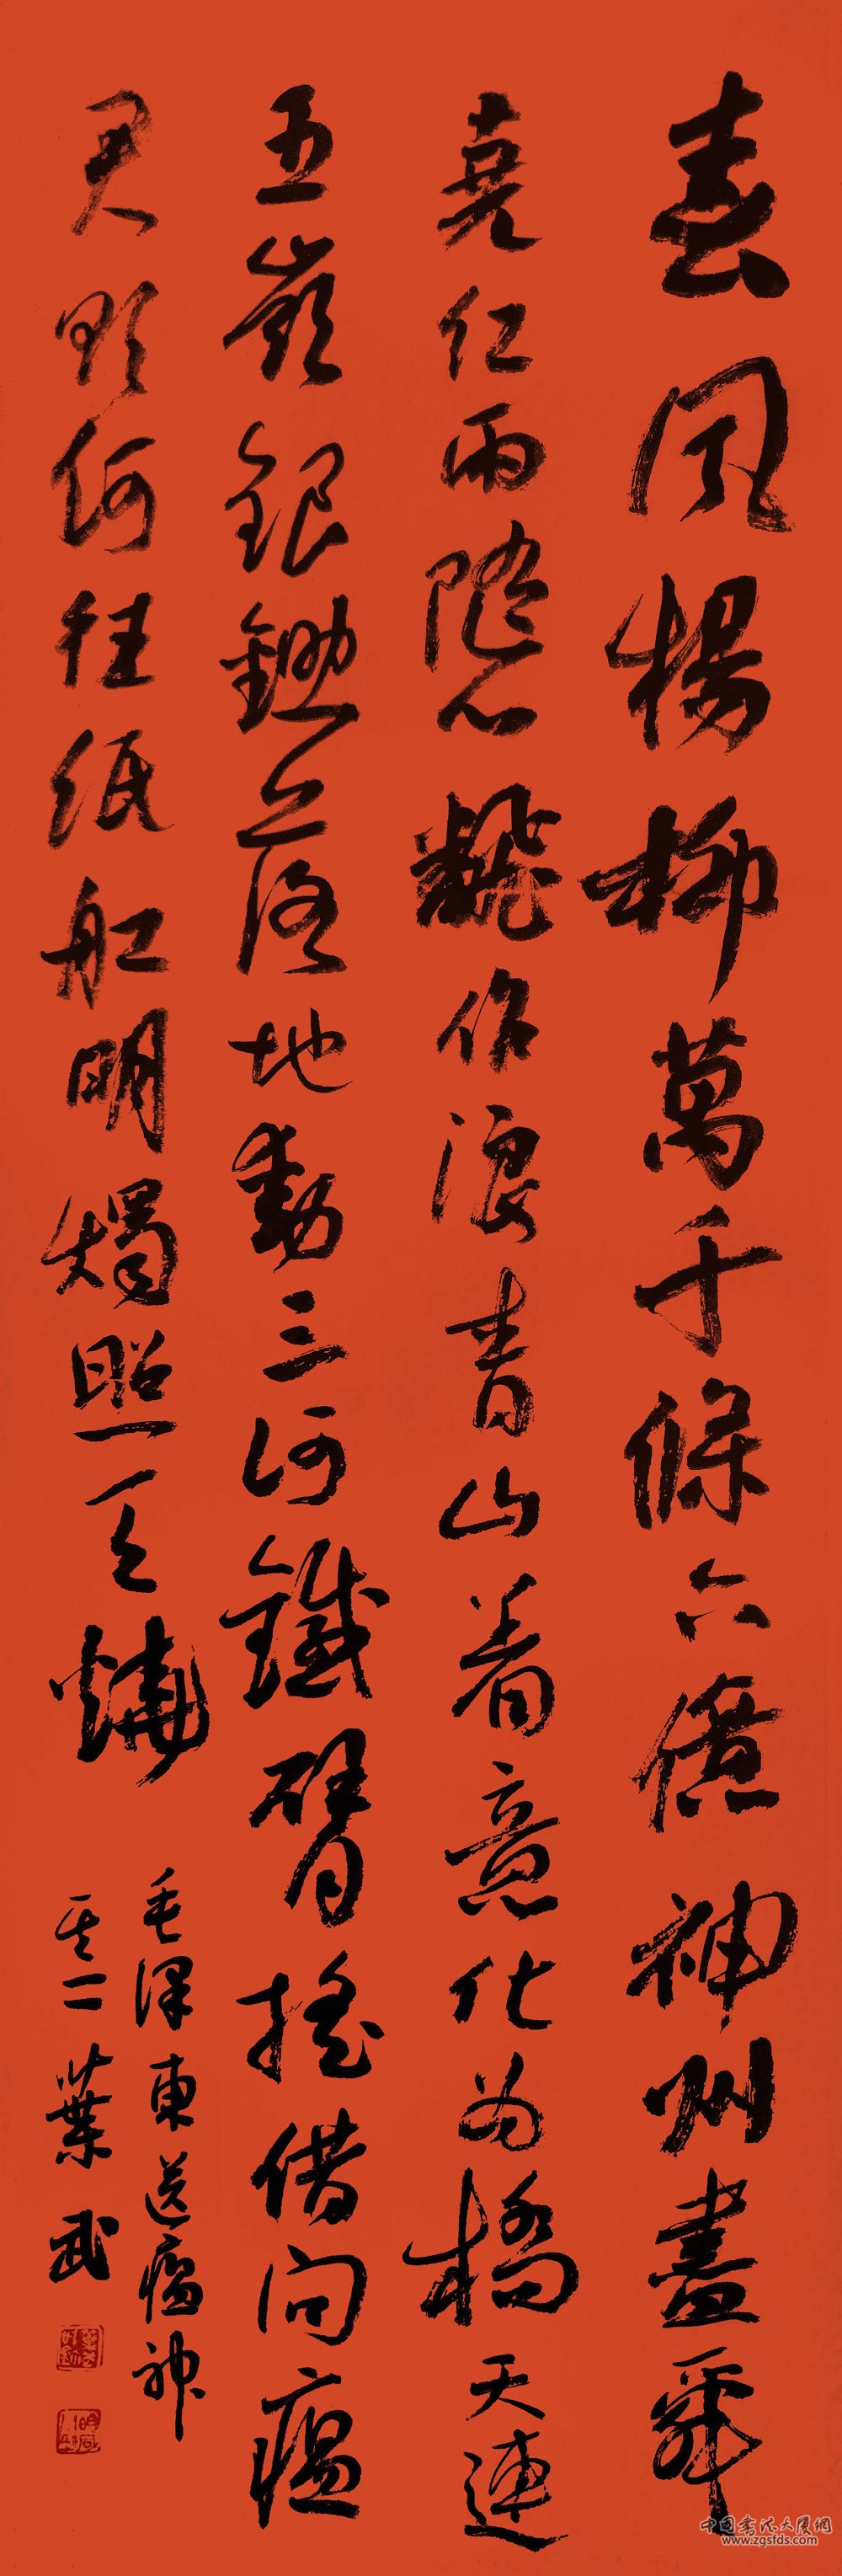 春風楊柳萬千條六億神州盡舜
堯紅雨隨心飜作浪青山着意化为橋天連
五嶺銀鋤落地動三河鐵臂搖借问瘟
君欲何往紙船明燭照天燒
毛澤東送瘟神
其二葉武
中国书法大厦网
www.zgsfds.com